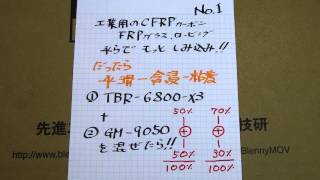 No.1
工業用のCFRPカーボン
FRPグラス、ロービング
平らで もっと しみ込み!!
だったら
平滑ー含浸ー粘着
① TBR-6800-X3
50% 70%
+
② GM-9050
を混ぜたら!!
50% 30%
100% 100%
先進
技研
http://www.ble
BlennyMOV